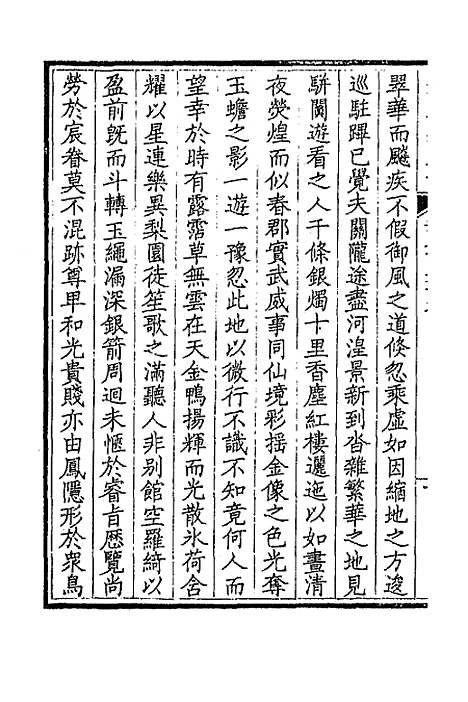 翠華而飈疾不假御風之道倏忽乘虛如因縮地之方逡
巡駐蹕已覺夫關隴途盡河湟景新到沓雜繁華之地見
駢闐遊看之人千條銀燭十里香塵紅樓邐迤以如晝清
夜熒煌而似春郡實武威事同仙境彩揺金像之色光奪
玉蟾之影一遊一豫忽此地以微行不識不知竟何人而
望幸於時有露霑草無雲在天金鴨揚輝而光散氷荷舎
耀以星連樂異梨園徒笙歌之滿聽人非别館空羅綺以
盈前旣而斗轉玉繩漏深銀箭周迴未愜於睿㫖歴覽尚
勞於宸眷莫不混跡尊卑和光貴賤亦由鳳隱形於衆鳥